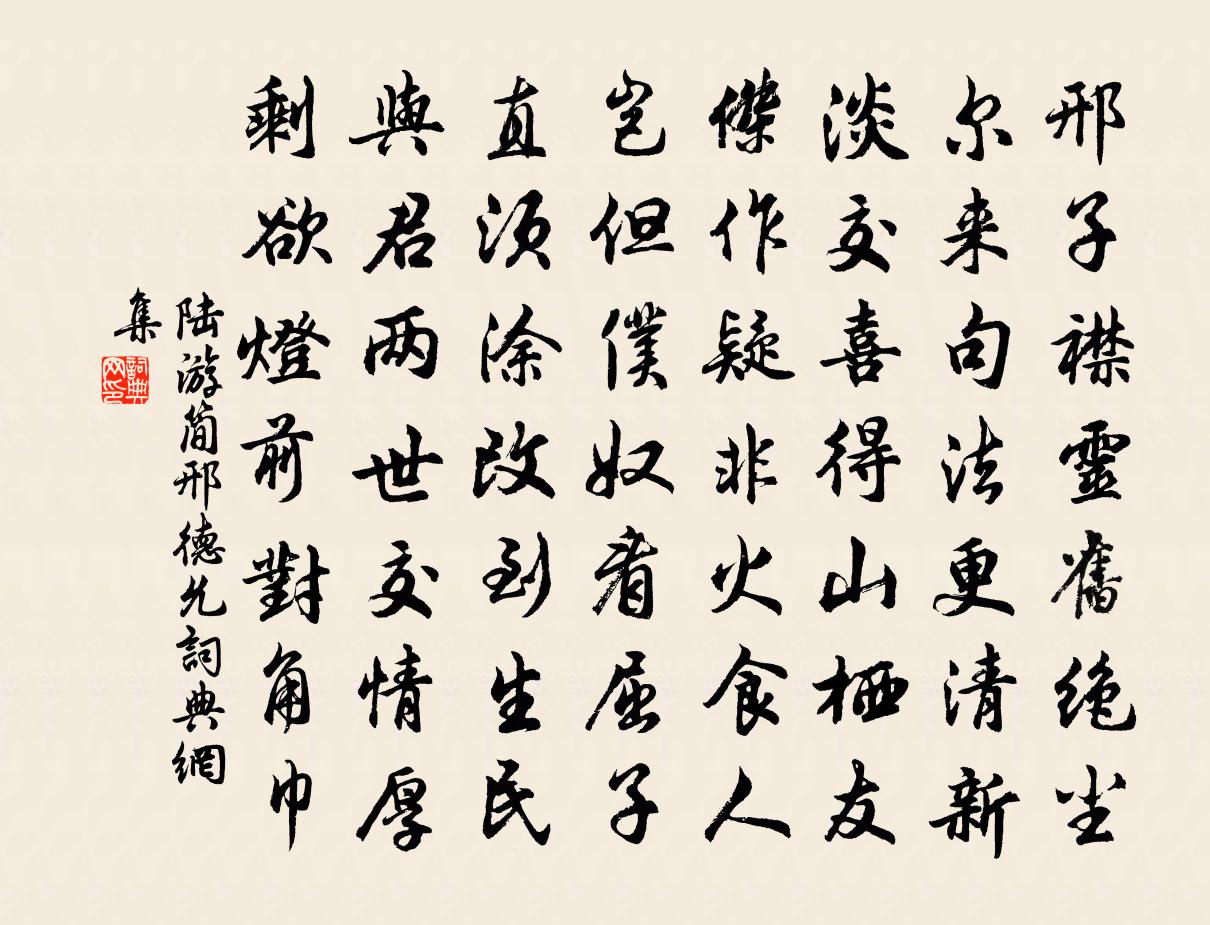 邢子襟靈舊绝尘
尔来句法更清新
淡交喜得山栖友
傑作疑非火食人
岂但僕奴看屈子
直须涂改到生民
與君两世交情厚
剩欲燈前對角巾
陆游简邢德允詞典網
集
詞典
网印